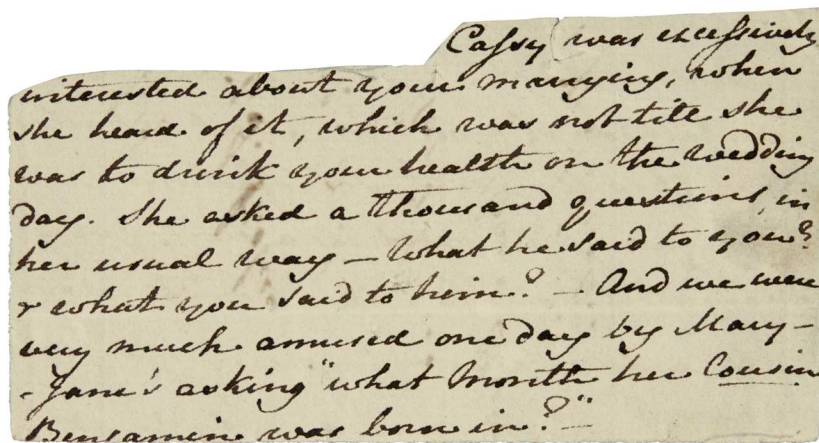 Cassy was excessively
interested about your marrying, when
she heard of it, which was not till she
was to drink your health on the wedding
day. She asked a thousand questions, in
her usual way – What he said to you?
& what you said to him? – And we were
very much amused one day by Mary–
-Jane's asking "what Month her Cousin
Benjamin was born in?" –